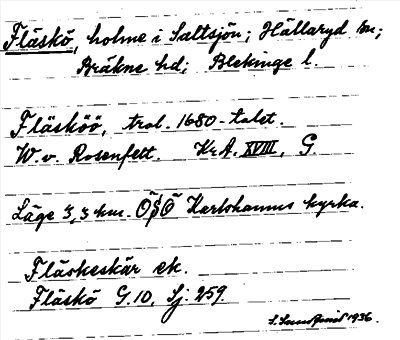 Fläskö, holme i Saltsjön; Hällaryd sn;
Bräkne hd; Blekinge l.
Fläsköö, trol. 1680-talet.
W. v. Rosenfelt. Kr.A. XVIII, G.
Läge 3,3 km. OSO Karlshamns kyrka.
Fläskeskär ek.
Fläskö G.10, Sj. 259.
1936.